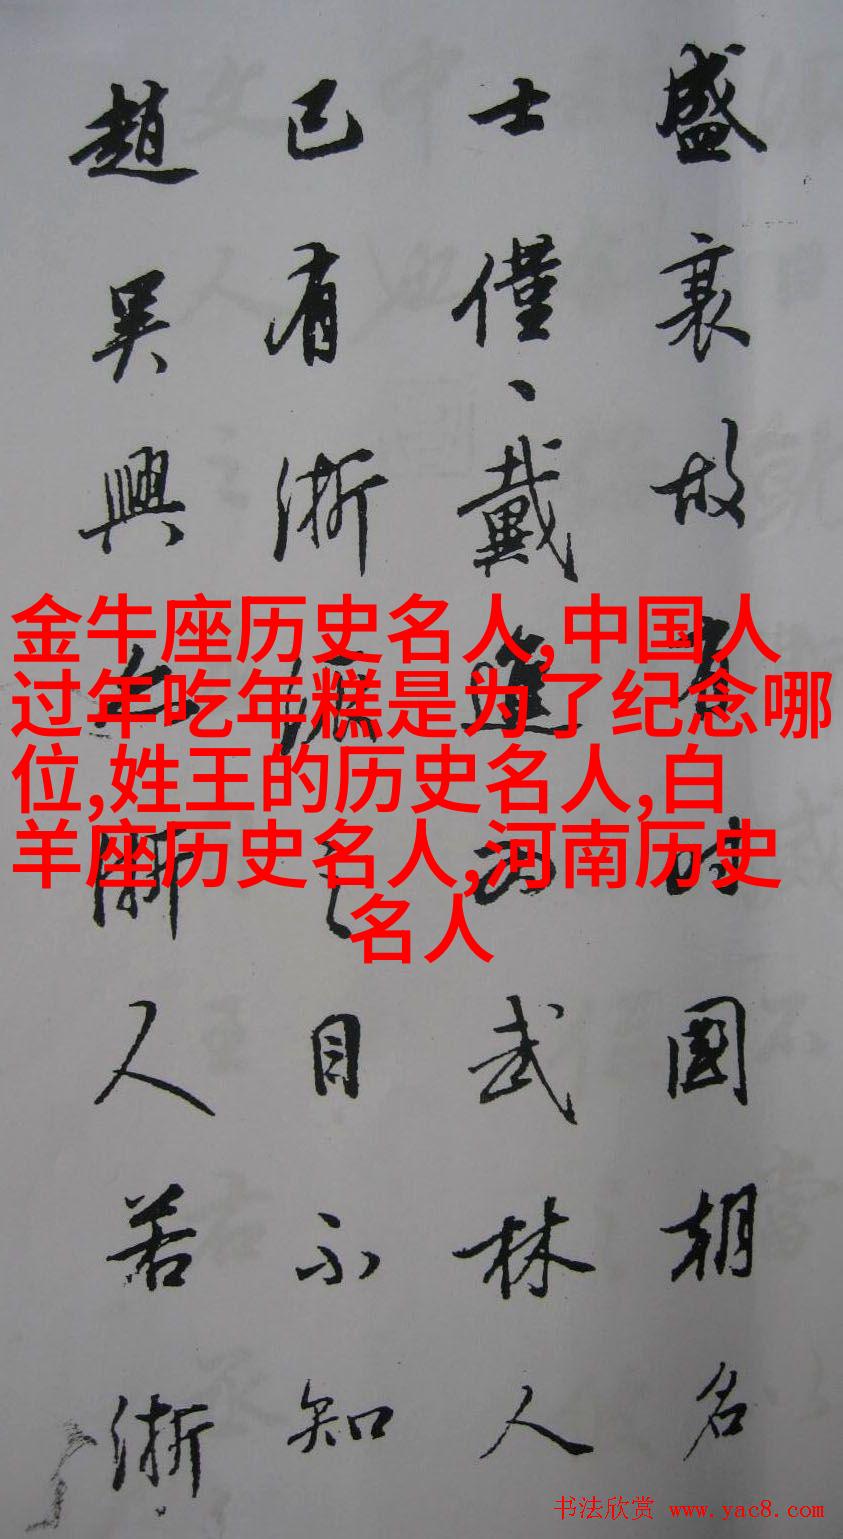 盛衰故有時國朝名
士僅戴進為武林人
已有浙派之目不知
趙吳興亦浙人若浙
金牛座历史名人,中国人
过年吃年糕是为了纪念哪
位,姓王的历史名人,白
羊座历史名人,河南历史
名人
书法欣赏 www.yac8.com